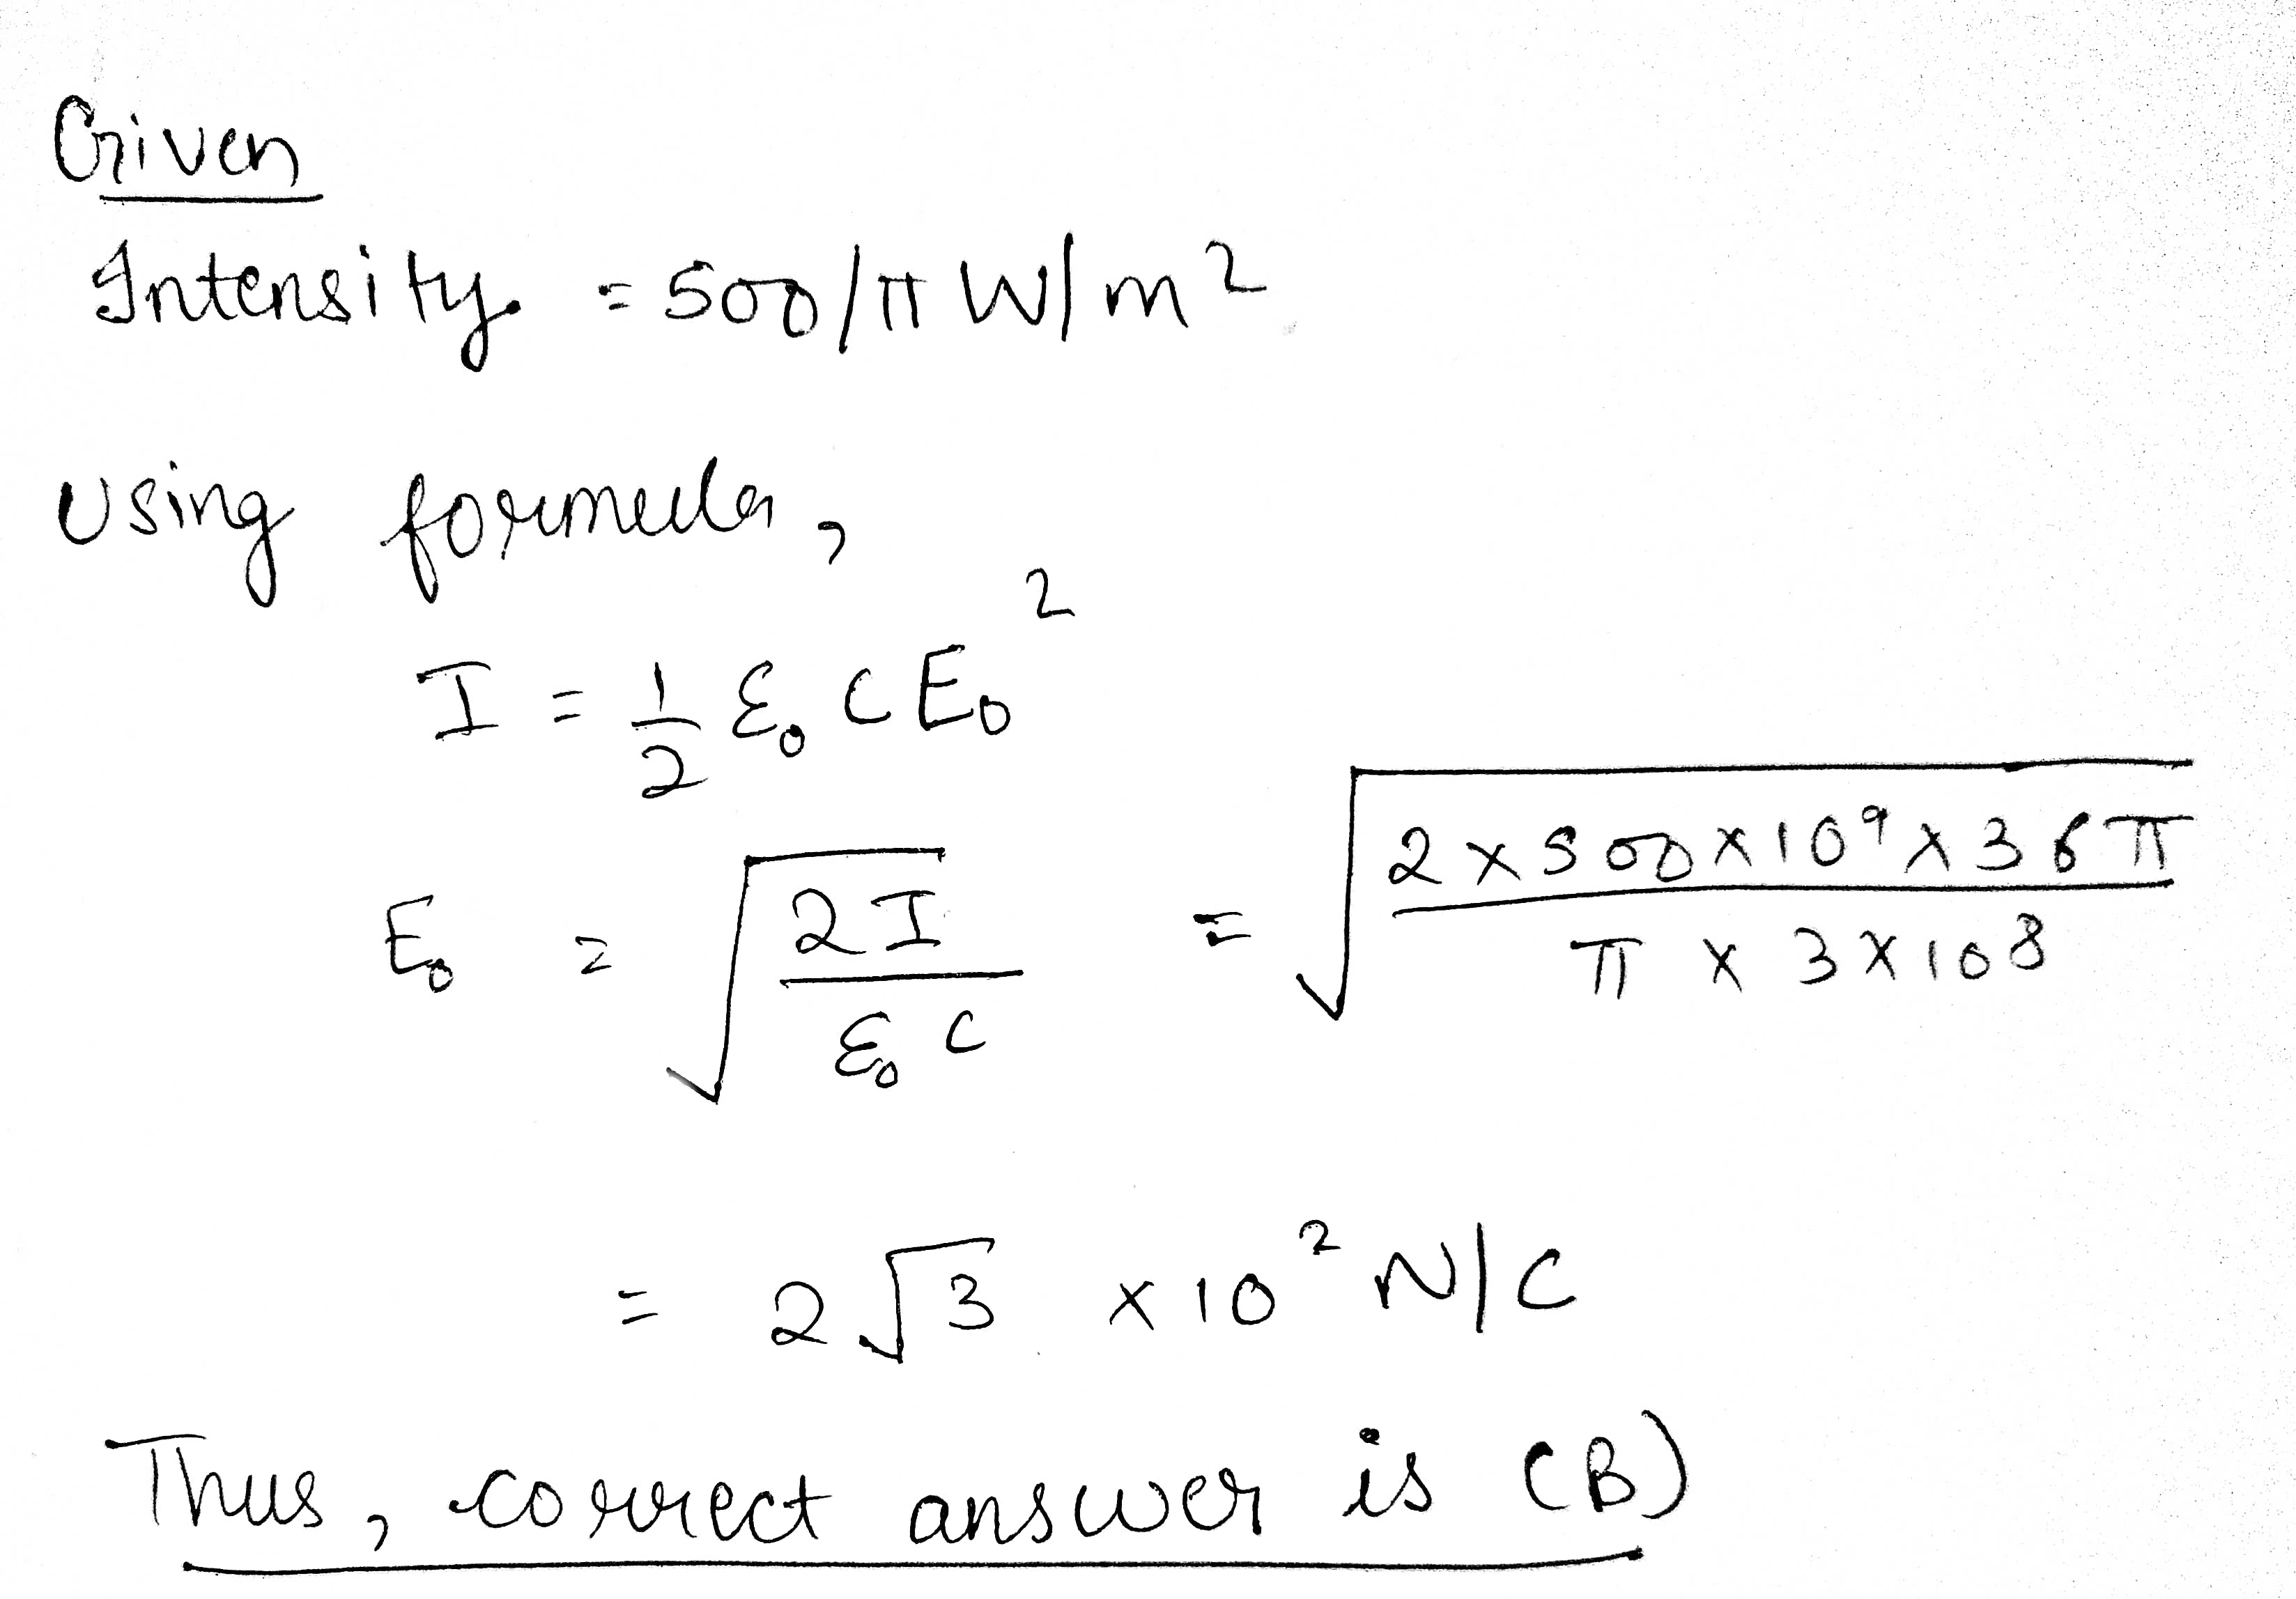 Given
Intensity = 500/π W/m²
Using formula,
I = 1/2 ε₀ C E₀²
E₀ = √(2I / ε₀ C) = √(2 × 500 × 10⁹ × 36π / π × 3 × 10⁸)
= 2√3 × 10² N/C
Thus, correct answer is (B)